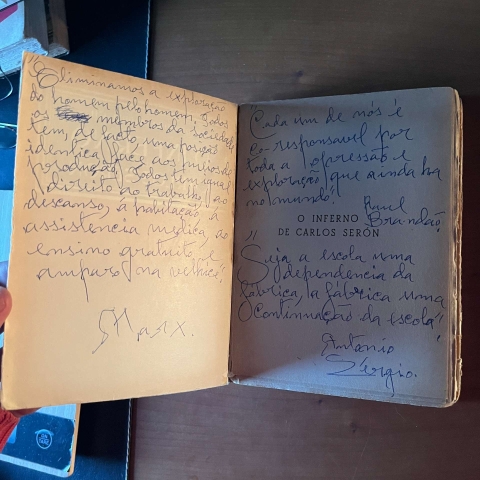 "Eliminamos a exploração
do homem pelo homem. Todos
os membros da sociedade
têm, de facto, uma posição
identica face aos meios de
produção. Todos tem igual
direito ao trabalho, ao
descanso, à habitação, à
assistencia medica, ao
ensino gratuito, e
amparo na velhice".
Marx.
"Cada um de nós é
co-responsavel por
toda a opressão e
exploração que ainda ha
no mundo".
Raul
Brandão
O INFERNO
DE CARLOS SERÓN
"Seja a escola uma
dependencia da
fábrica, a fábrica uma
continuação da escola"
Antonio
Sérgio.